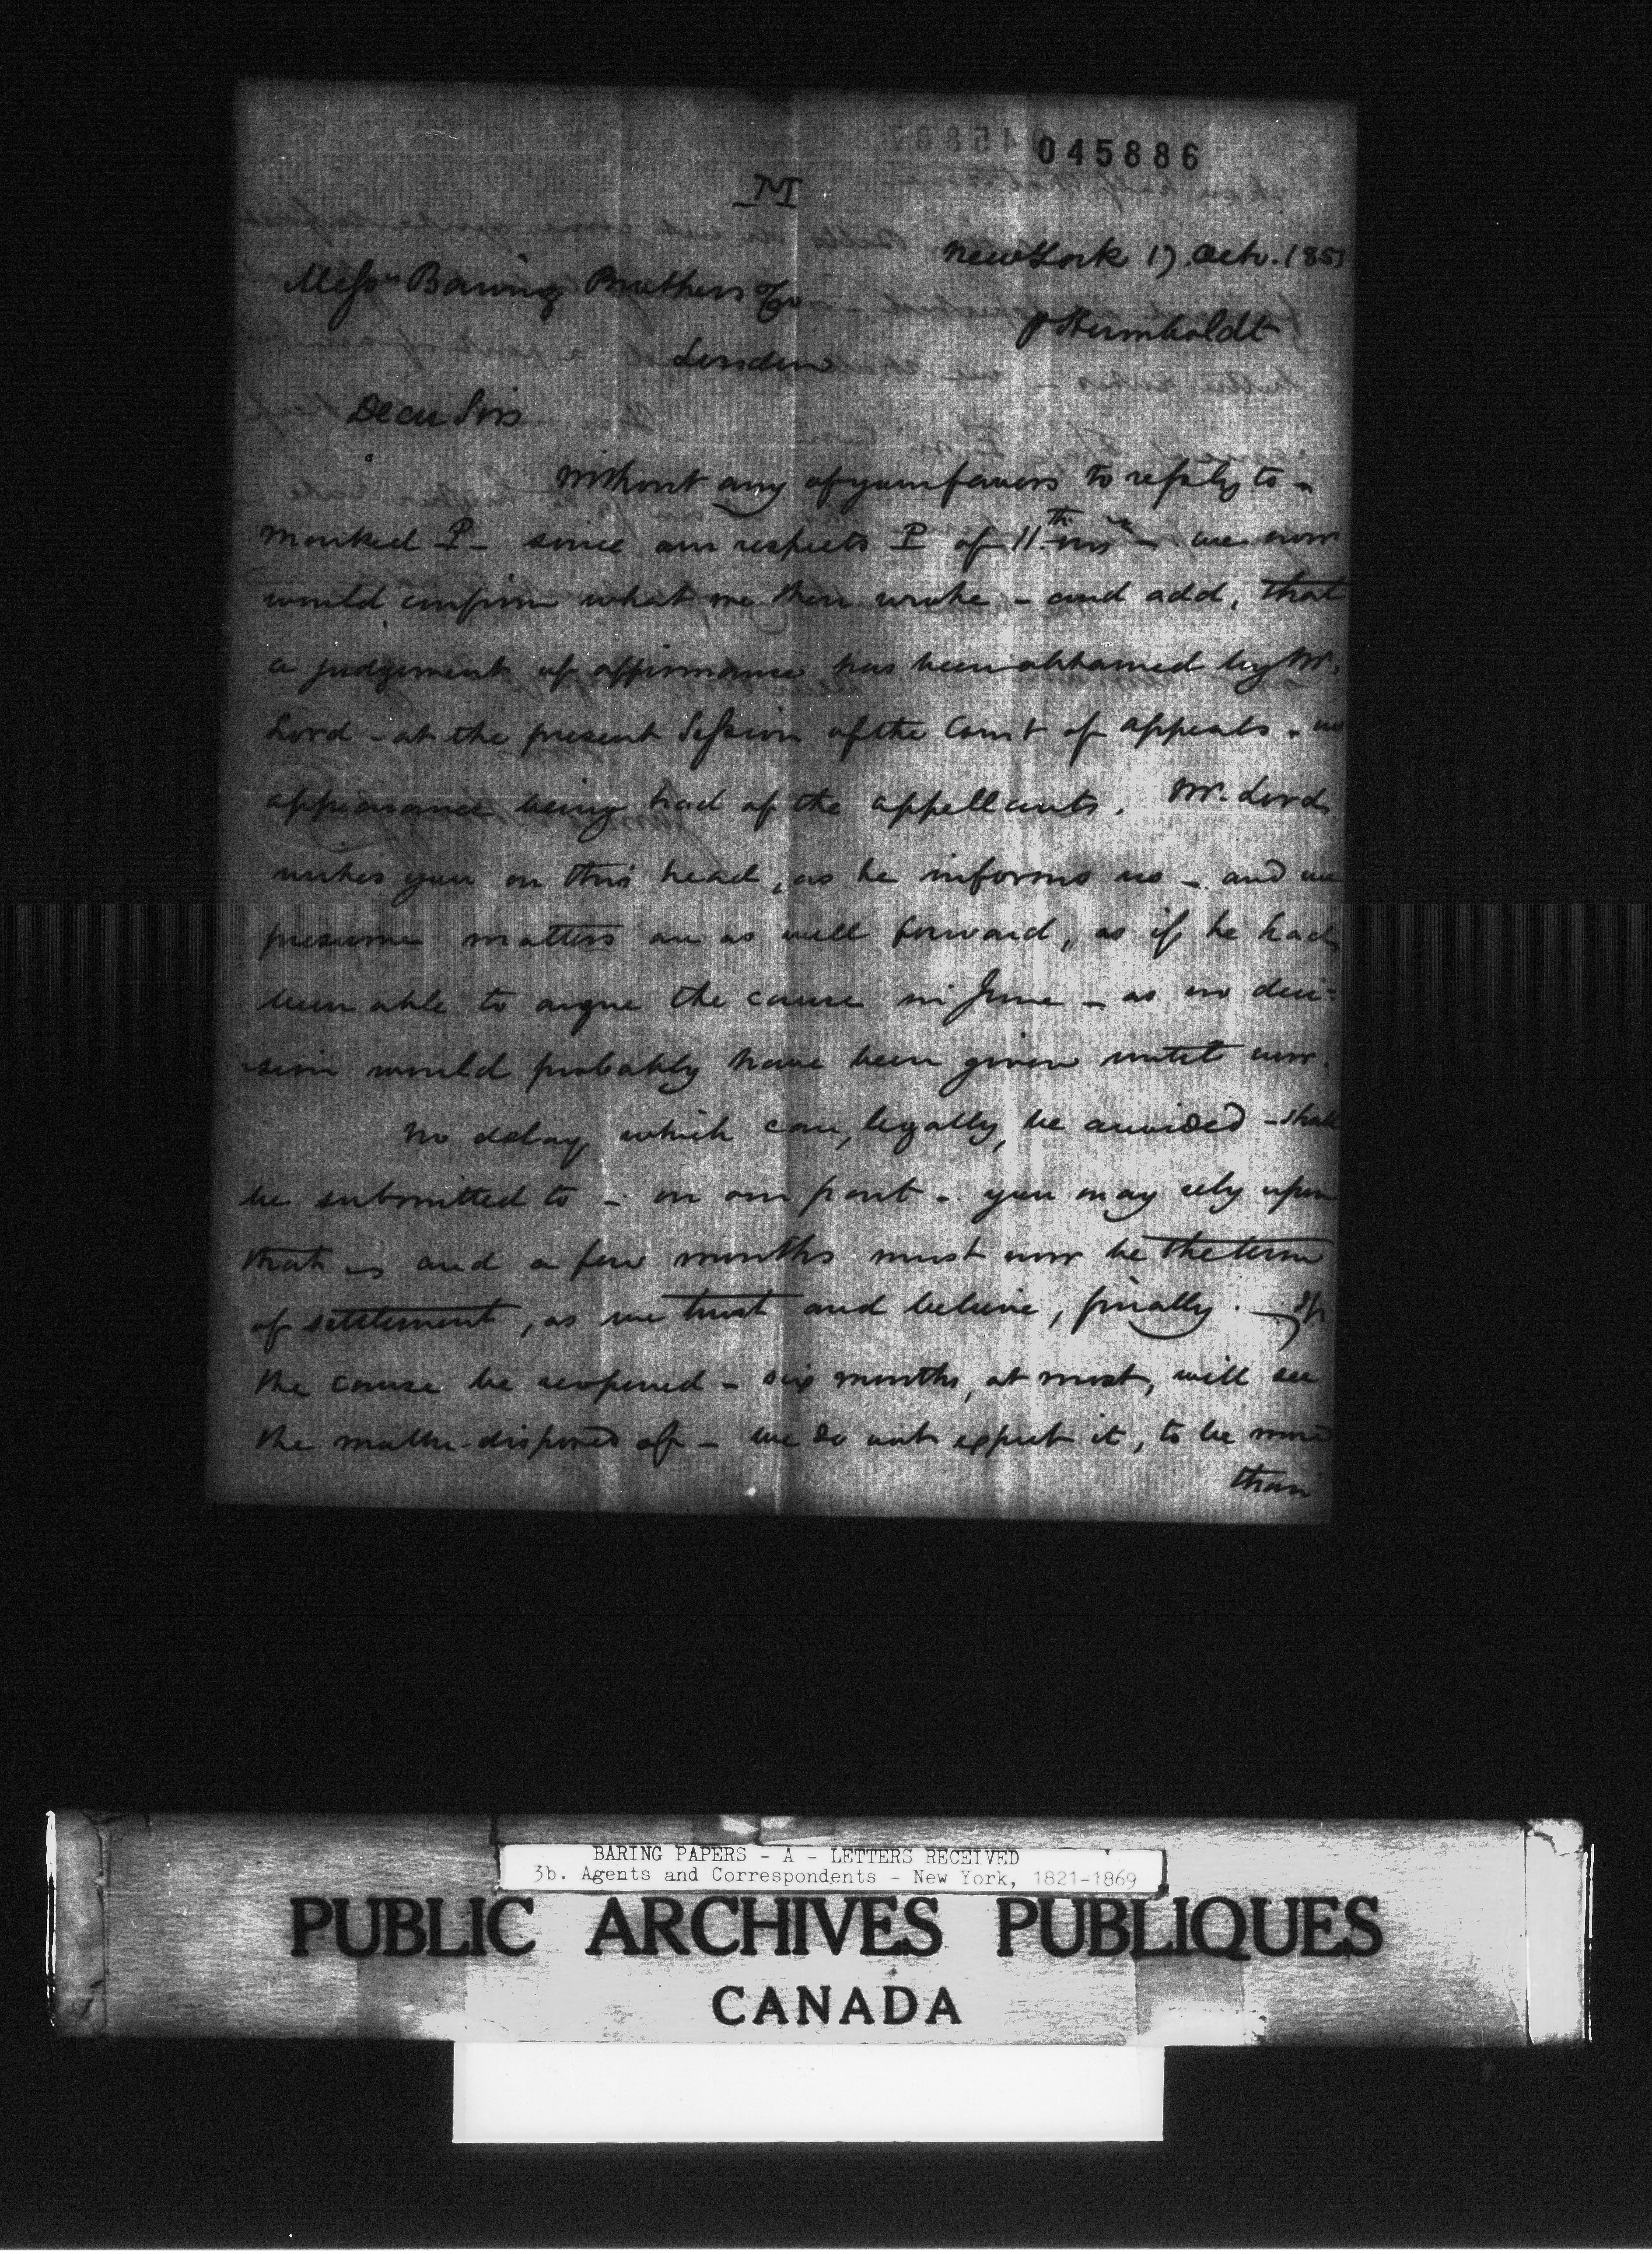 045886
M
New York 17. Octr. 1851
Messrs Baring Brothers & Co
p Humboldt
London
Dear Sirs
Without any of your favors to reply to -
marked P - since our respects P of 11th ins - we now
would confirm what we then wrote - and add, that
a judgement of affirmance has been obtained by Mr.
Lord - at the present Session of the Court of appeals - no
appearance being had of the appellants. Mr. Lord
writes you on this head, as he informs us - and we
presume matters are as well forward, as if he had
been able to argue the cause in June - as no deci-
-sion would probably have been given until now.
No delay, which can, legally, be avoided - shall
be submitted to - on our part - you may rely upon
that - and a few months must now be the term
of settlement, as we trust and believe, finally. - If
the cause be reopened - six months, at most, will see
the matter disposed of - we do not expect it, to be more
than
BARING PAPERS - A - LETTERS RECEIVED
3b. Agents and Correspondents - New York, 1821-1869
PUBLIC ARCHIVES PUBLIQUES
CANADA